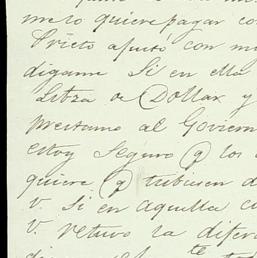 me lo quiere pagar co
Prieto ajustó con m
digame Si en ella
Libra de Dollar y
prestamo al Goviern
estoy Seguro q los
quiere q tubiesen d
V. Si en aquella c
V. retuvo la difer